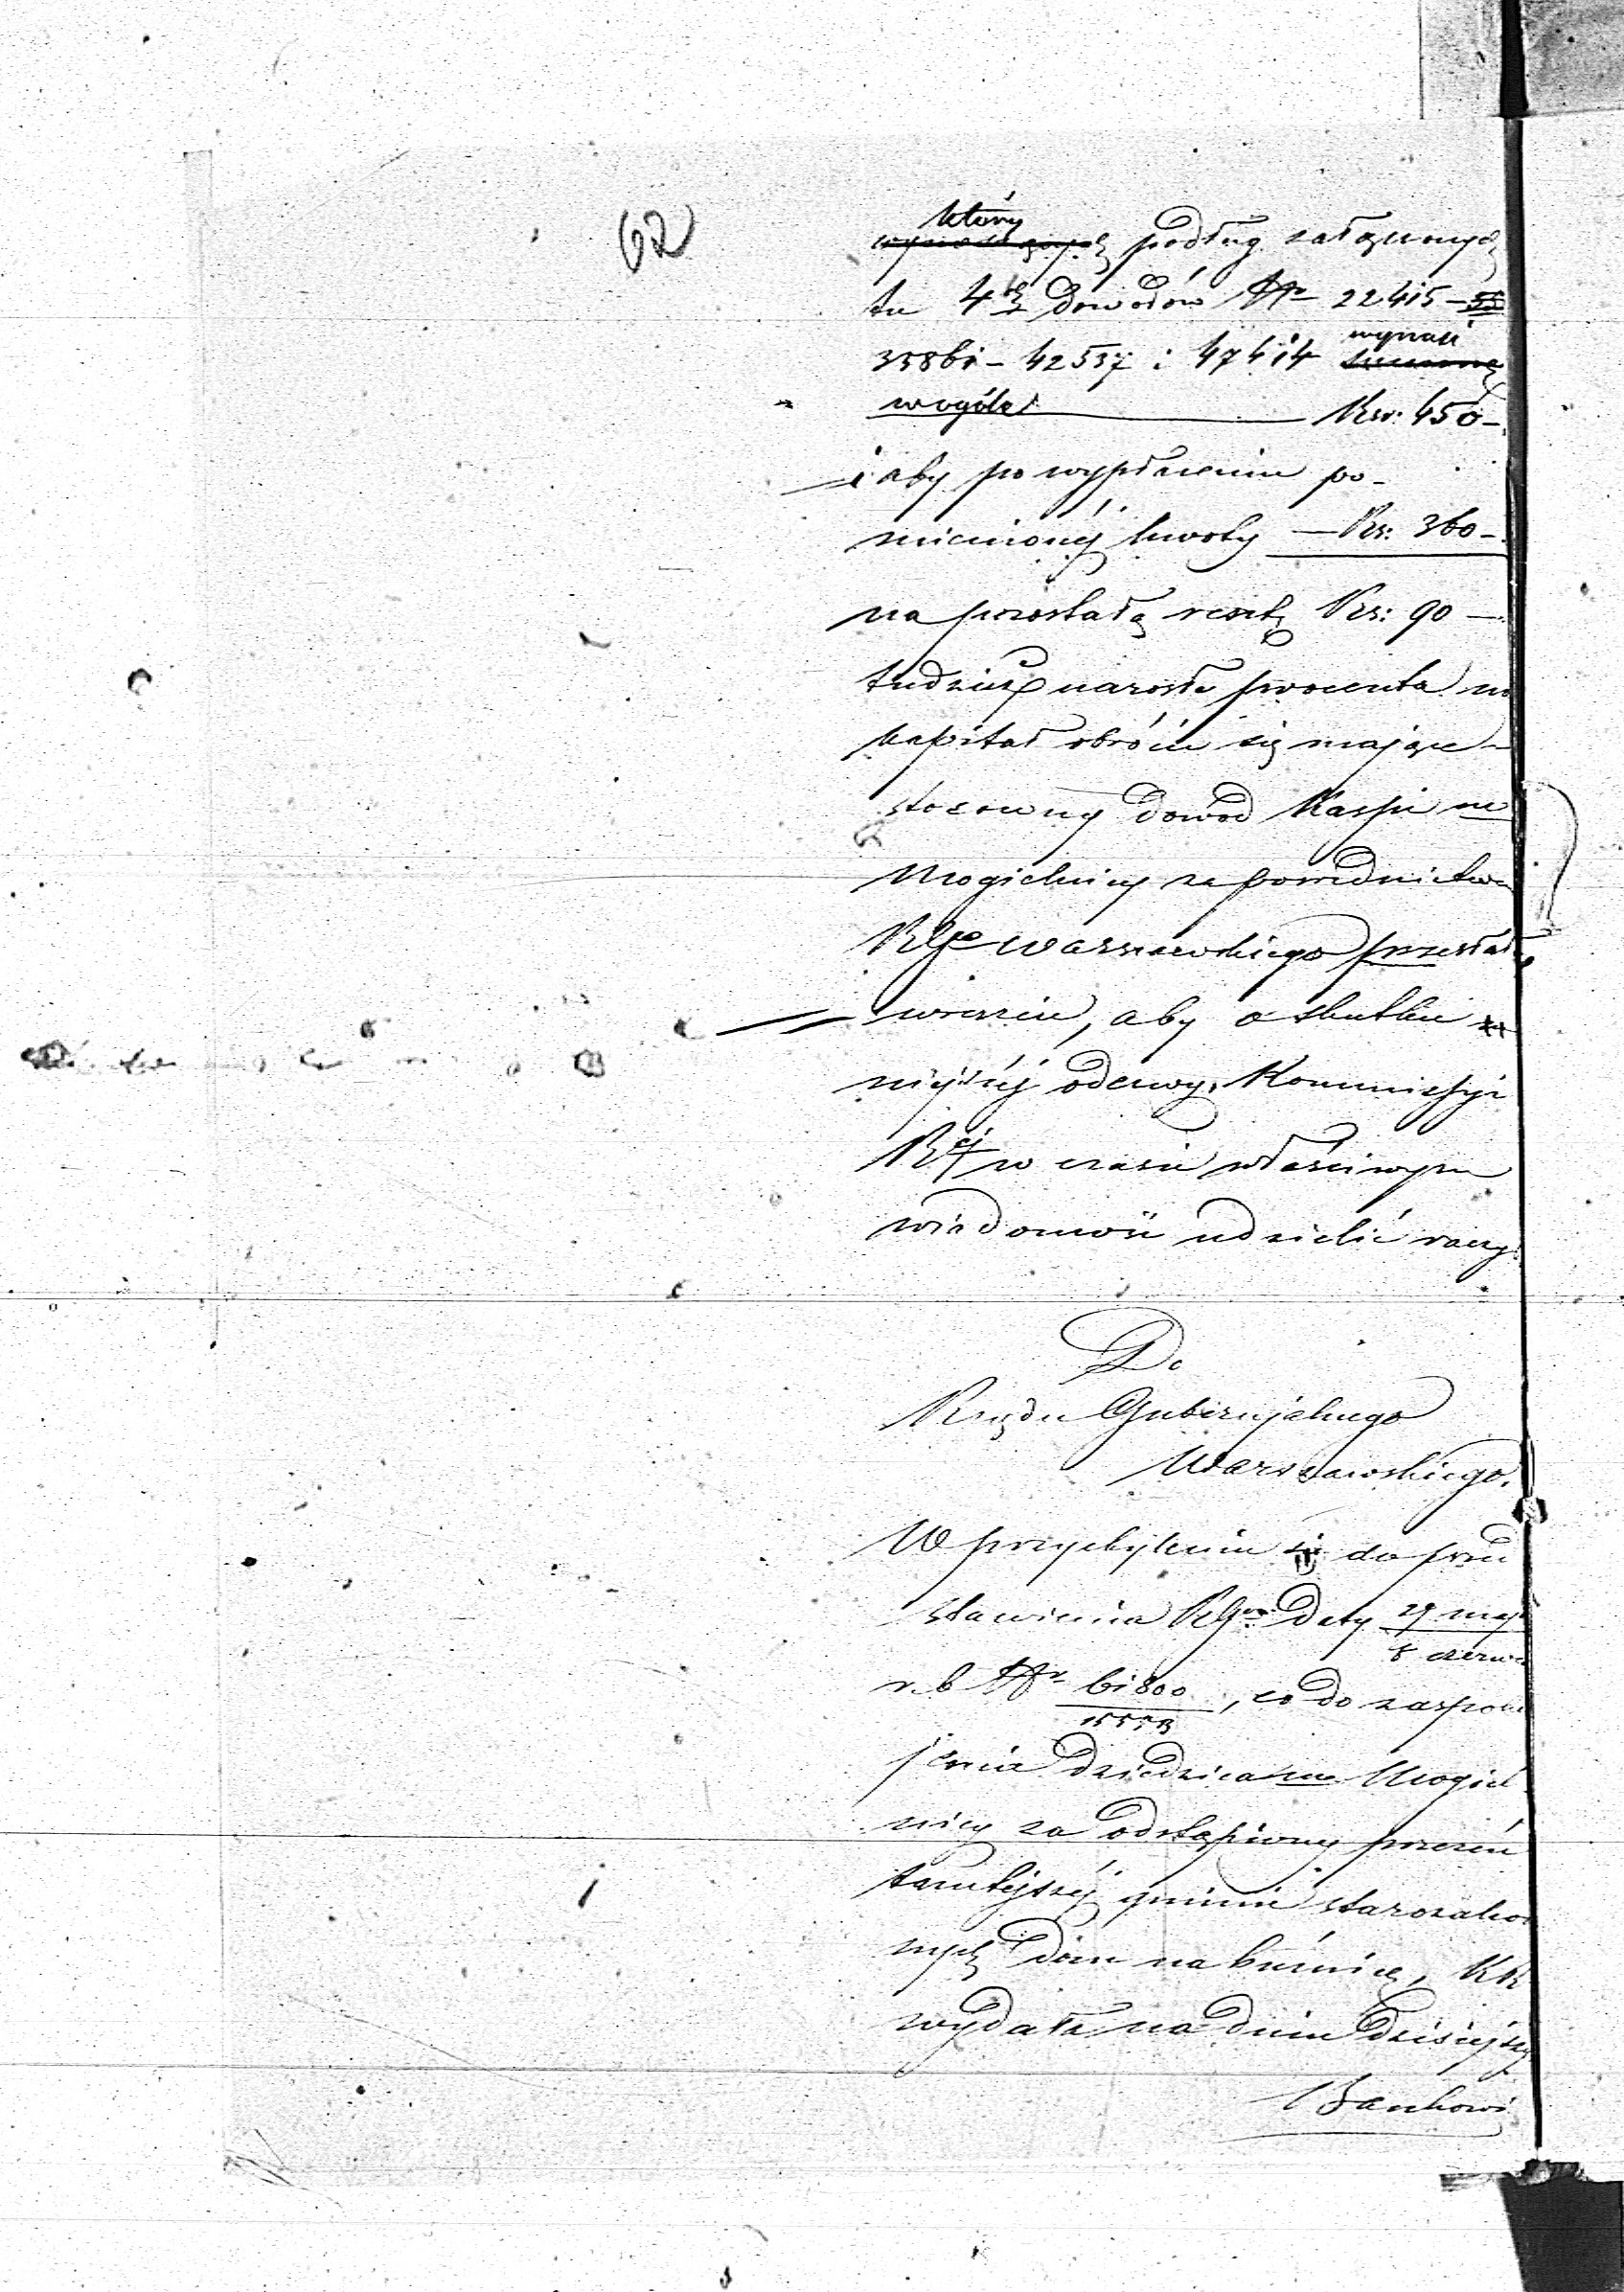 62
który
wynoszących podług załączonych
tu 4ch dowodów Nr 22415 –
35861 – 42537 i 47414 wynosi summę
wogóle Rsr: 450 –
i aby po wypłaceniu po-
mienionéj kwoty — Rs: 360 –
na pozostałą resztę Rs: 90 —
tudzież narosłe procenta na
kapitał obrócić się mające –
stosowny dowód Kassie m.
Mogielnicy za pośrednictwem
RGo Warszawskiego przesłać,
wreszcie, aby o skutku
niejszéj odezwy, Kommissyi
Réj w czasie właściwym
wiadomość udzielić raczył
Do
Rządu Gubernjalnego
Warszawskiego.
W przychyleniu się do przed
stawienia RGo Daty 29 maja
8 czerwca
r. b Nr 61800
15573
, co do zaspoko
jenia dziedzica m. Mogiel
nicy za odstąpiony przezeń
tamtejszéj gminie starozakon
nych dom na bóżnicę, KR
wydała na dniu dzisiejszym
Bankowi